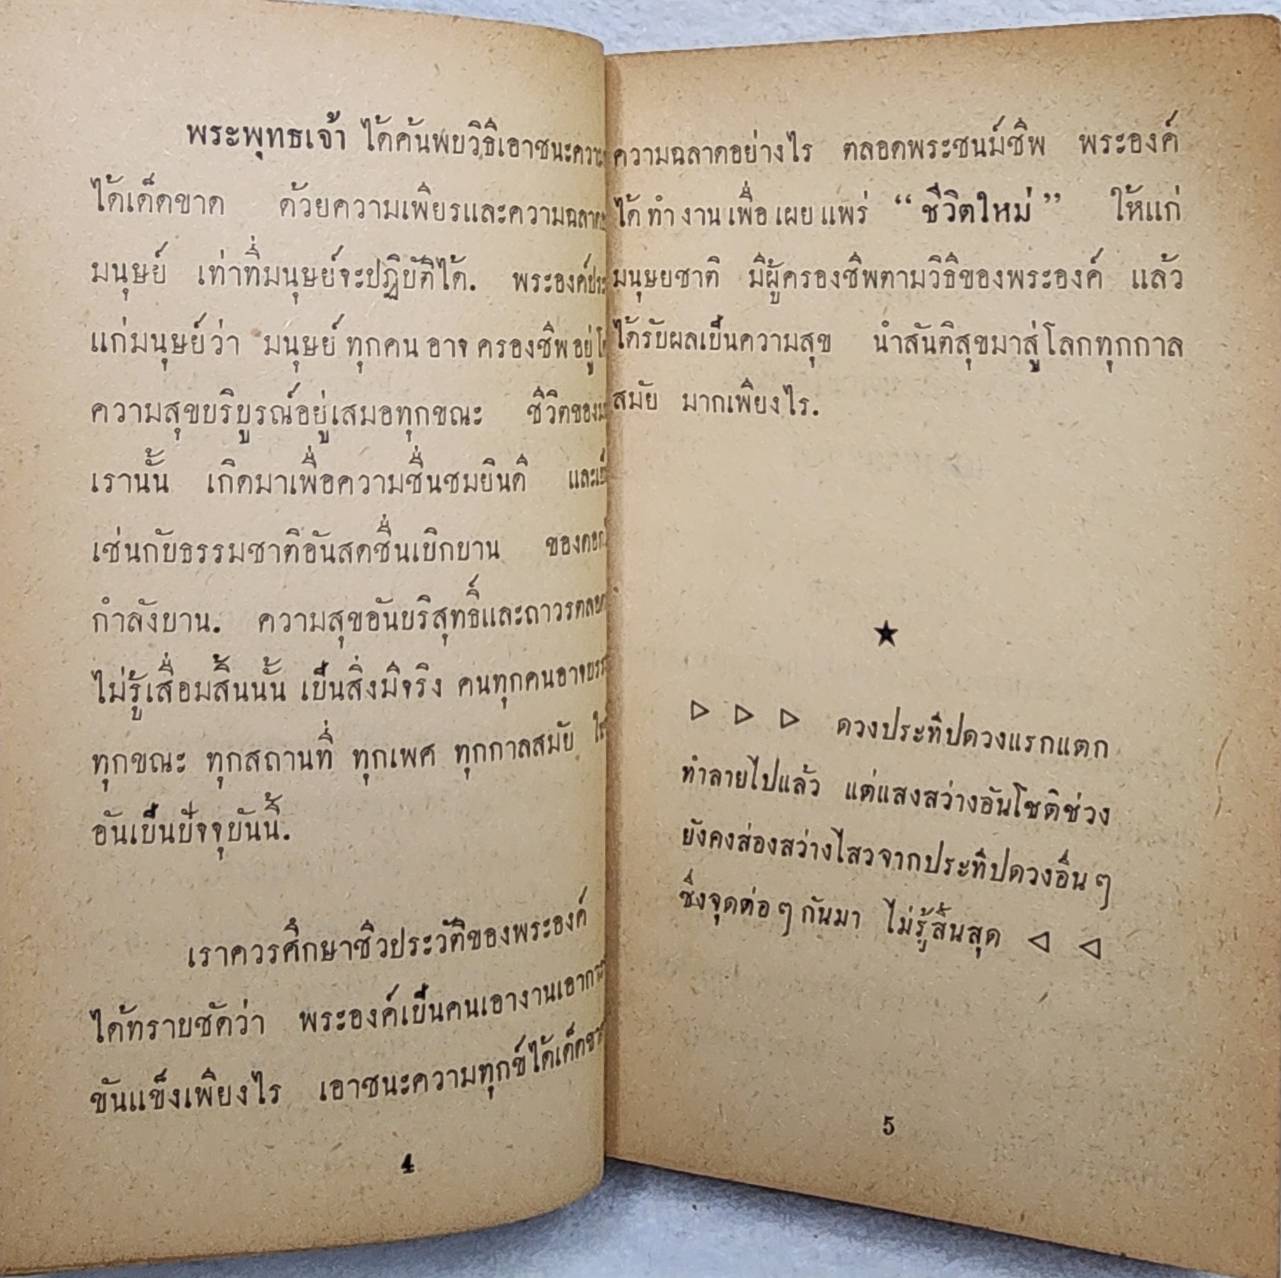 พระพุทธเจ้า ได้ค้นพบวิธีเอาชนะความ
ได้เด็ดขาด ด้วยความเพียรและความฉลาด
มนุษย์ เท่าที่มนุษย์จะปฏิบัติได้. พระองค์
แก่มนุษย์ว่า มนุษย์ทุกคนอาจครองชีพอยู่
ความสุขบริบูรณ์อยู่เสมอทุกขณะ ชีวิตของ
เรานั้น เกิดมาเพื่อความชื่นชมยินดี และ
เช่นกับธรรมชาติอันสดชื่นเบิกบาน ของ
กำลังบาน. ความสุขอันบริสุทธิ์และถาวร
ไม่รู้เสื่อมสิ้นนั้น เป็นสิ่งมีจริง คนทุกคนอาจ
ทุกขณะ ทุกสถานที่ ทุกเพศ ทุกกาลสมัย
อันเป็นปัจจุบันนี้.
เราควรศึกษาชีวประวัติของพระองค์
ได้ทราบชัดว่า พระองค์เป็นคนเอางานเอาการ
ขันแข็งเพียงไร เอาชนะความทุกข์ได้เด็ดขาด
4
ความฉลาดอย่างไร ตลอดพระชนม์ชีพ พระองค์
ได้ทำงานเพื่อเผยแพร่ “ชีวิตใหม่” ให้แก่
มนุษยชาติ มีผู้ครองชีพตามวิธีของพระองค์ แล้ว
ได้รับผลเป็นความสุข นำสันติสุขมาสู่โลกทุกกาล
สมัย มากเพียงไร.
★
▷ ▷ ▷ ดวงประทีปดวงแรกแตก
ทำลายไปแล้ว แต่แสงสว่างอันโชติช่วง
ยังคงส่องสว่างไสวจากประทีปดวงอื่นๆ
ซึ่งจุดต่อๆกันมา ไม่รู้สิ้นสุด ◁ ◁
5